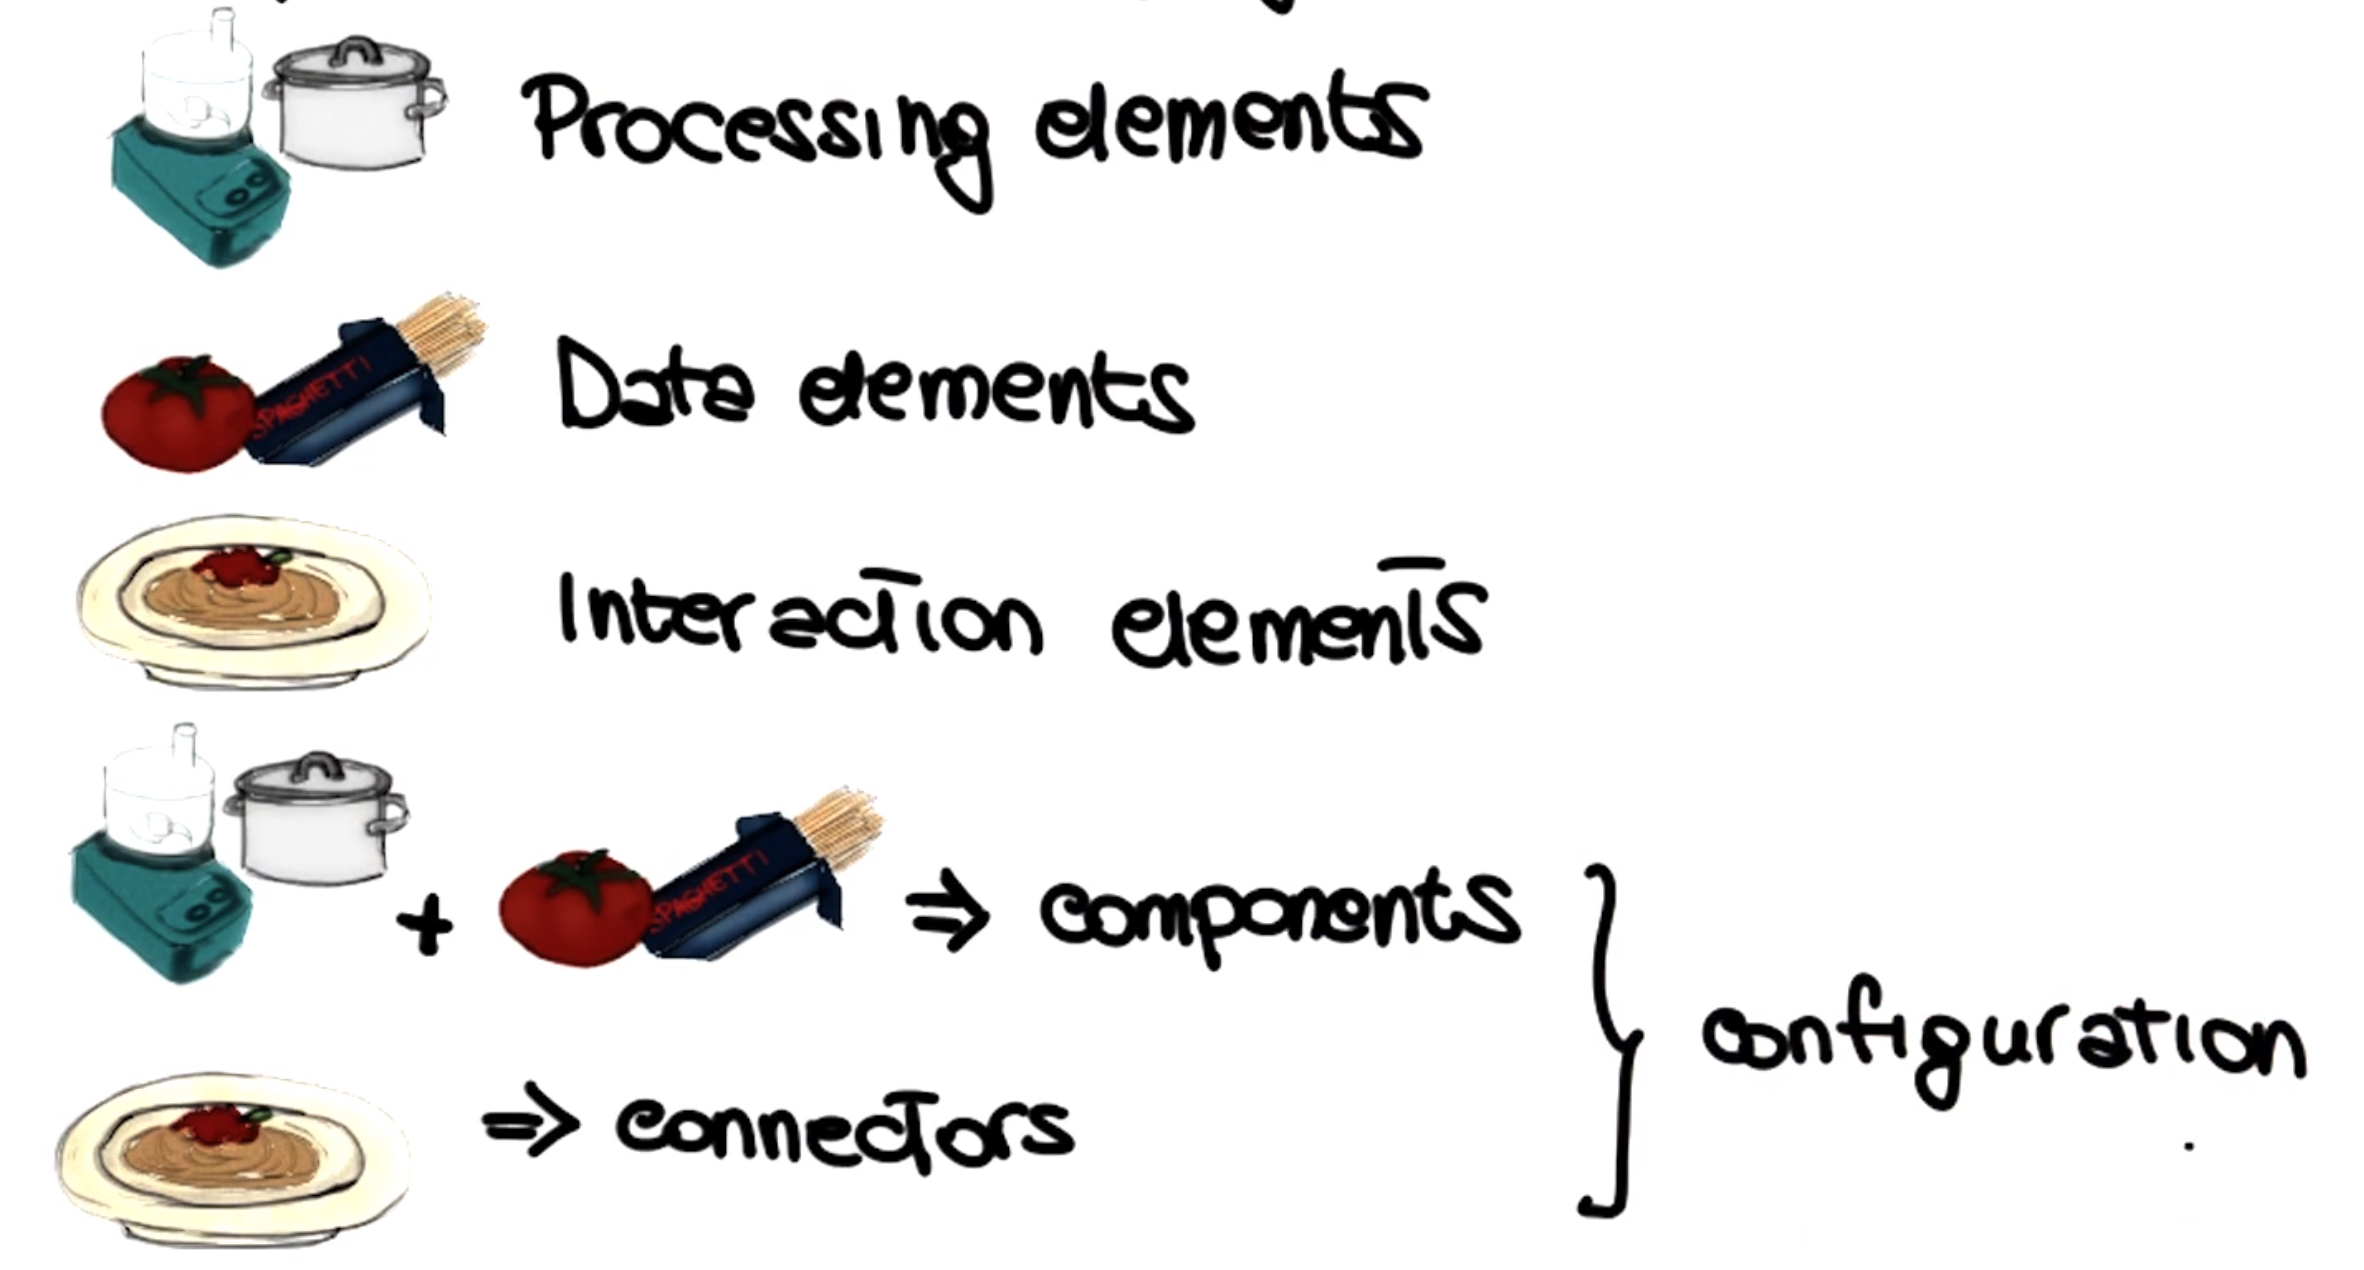 Processing elements
SPAGHETTI
Data elements
Interaction elements
+ SPAGHETTI ⇒ components
configuration
⇒ connectors